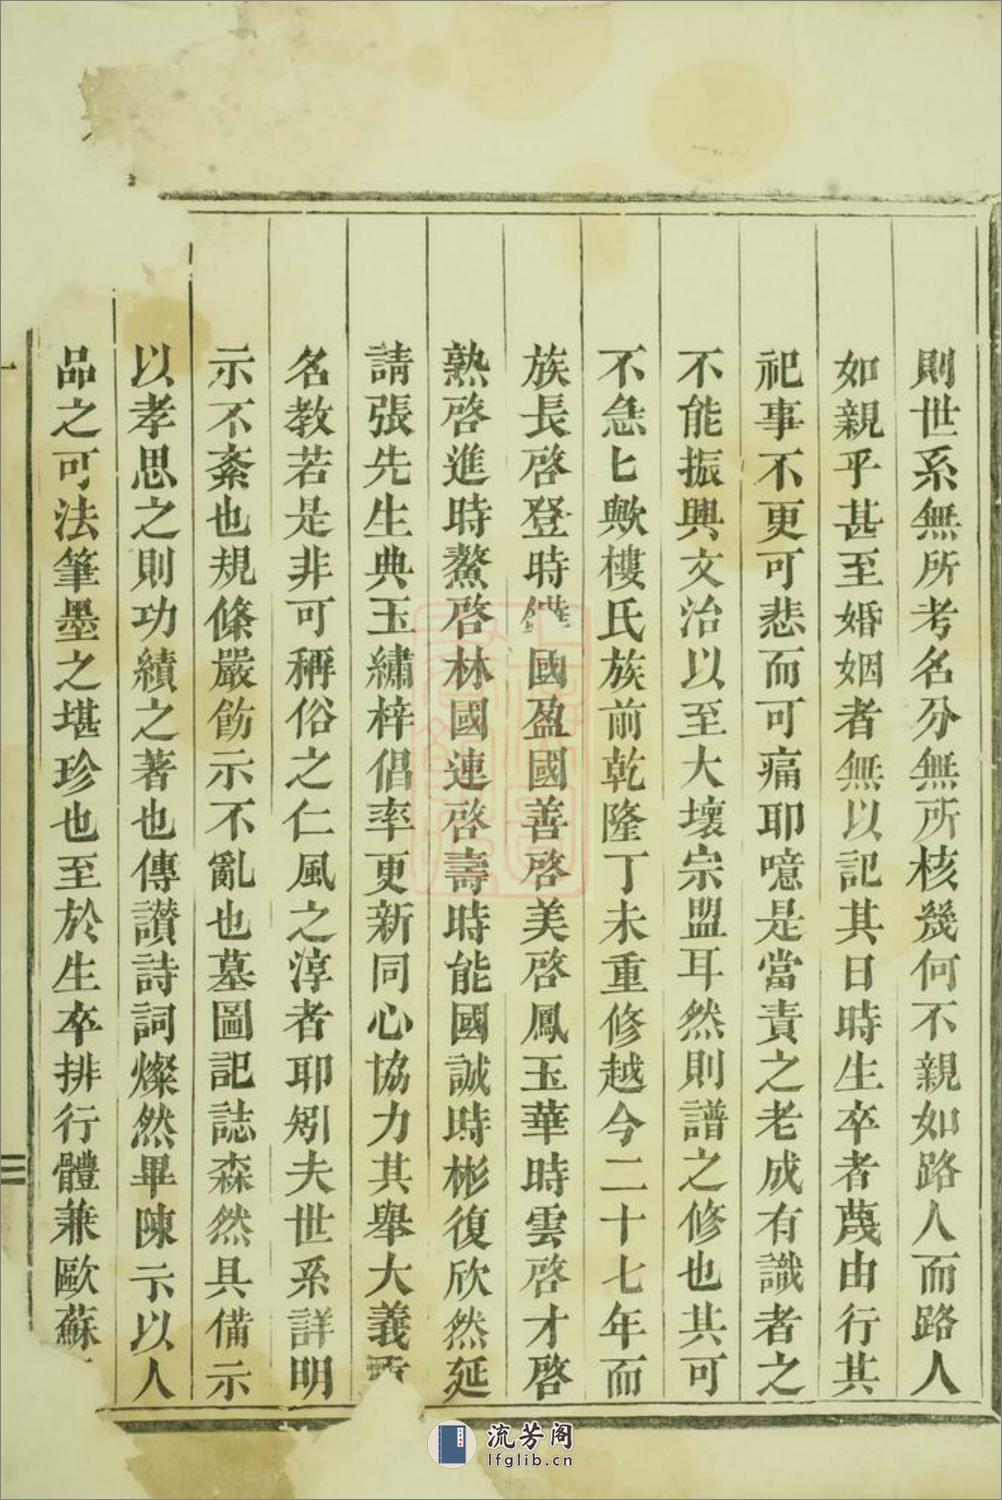 則世系無所考名分無所核幾何不親如路人而路人
如親乎甚至婚姻者無以記其日時生卒者蔑由行其
祀事不更可悲而可痛耶噫是當責之老成有識者之
不能振興文治以至大壞宗盟耳然則譜之修也其可
不急乜歟樓氏族前乾隆丁未重修越今二十七年而
族長啓登時國盈國善啓美啓鳳玉華時雲啓才啓
熟啓進時鰲啓林國連啓壽時能國誠時彬復欣然延
請張先生典玉繡梓倡率更新同心協力其舉大義
名教若是非可稱俗之仁風之淳者耶矧夫世系詳明
示不紊也規條嚴飭示不亂也墓圖記誌森然具備示
以孝思之則功績之著也傳讃詩詞燦然畢陳示以人
品之可法筆墨之堪珍也至於生卒排行體兼歐蘇
三
流芳阁
lfglib.cn